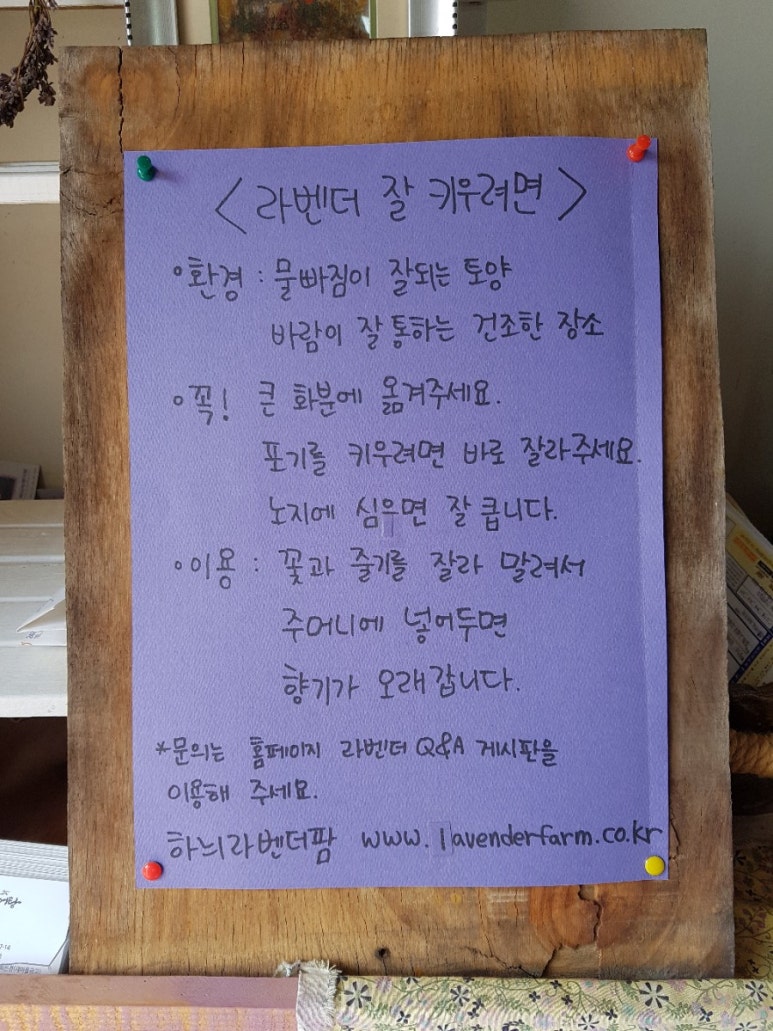 <라벤더 잘 키우려면>
•환경 : 물빠짐이 잘되는 토양
바람이 잘 통하는 건조한 장소
•꼭! 큰 화분에 옮겨주세요.
포기를 키우려면 바로 잘라주세요.
노지에 심우면 잘 큽니다.
•이용 : 꽃과 줄기를 잘라 말려서
주머니에 넣어두면
향기가 오래갑니다.
*문의는 홈페이지 라벤더 Q&A 게시판을
이용해 주세요.
하늬라벤더팜 www.lavenderfarm.co.kr